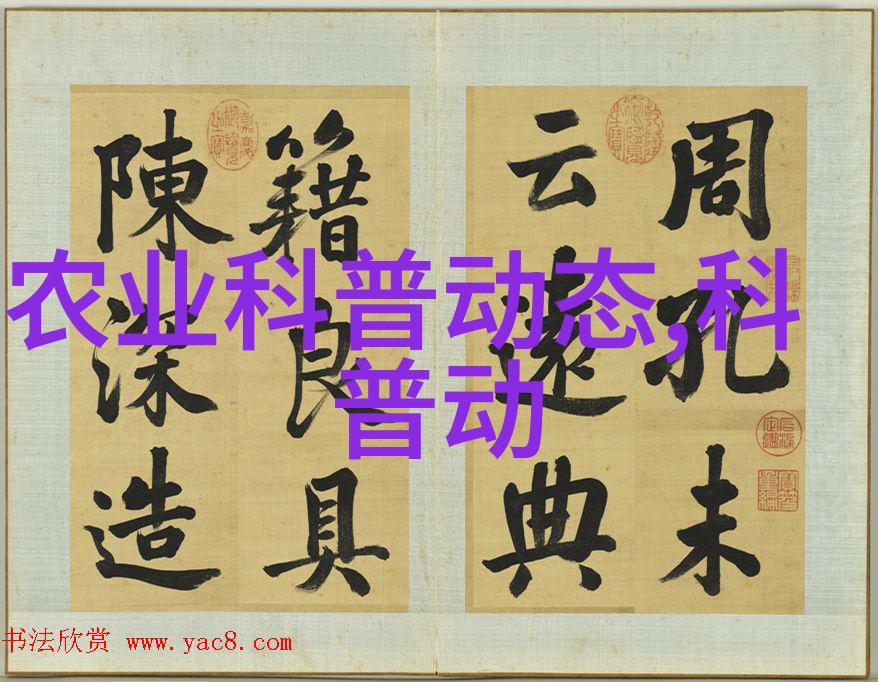 周孔未
云遠典
籍良具
陳深造
农业科普动态,科
普动
书法欣赏 www.yac8.com